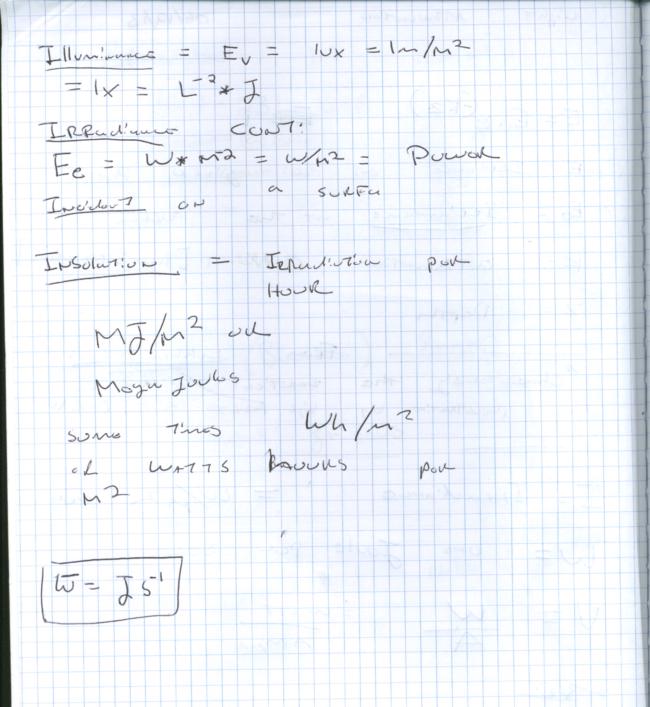 Illuminance = Ev = lux = lm/m²
= lx = L⁻² * J
Irradiance CONT:
Ee = W * m⁻² = W/m² = Power
Incident on a surface
Insolation = Irradiation per
Hour
MJ/m² or
Mega Joules
some times Wh/m²
or WATTS per
m²
W = J s⁻¹